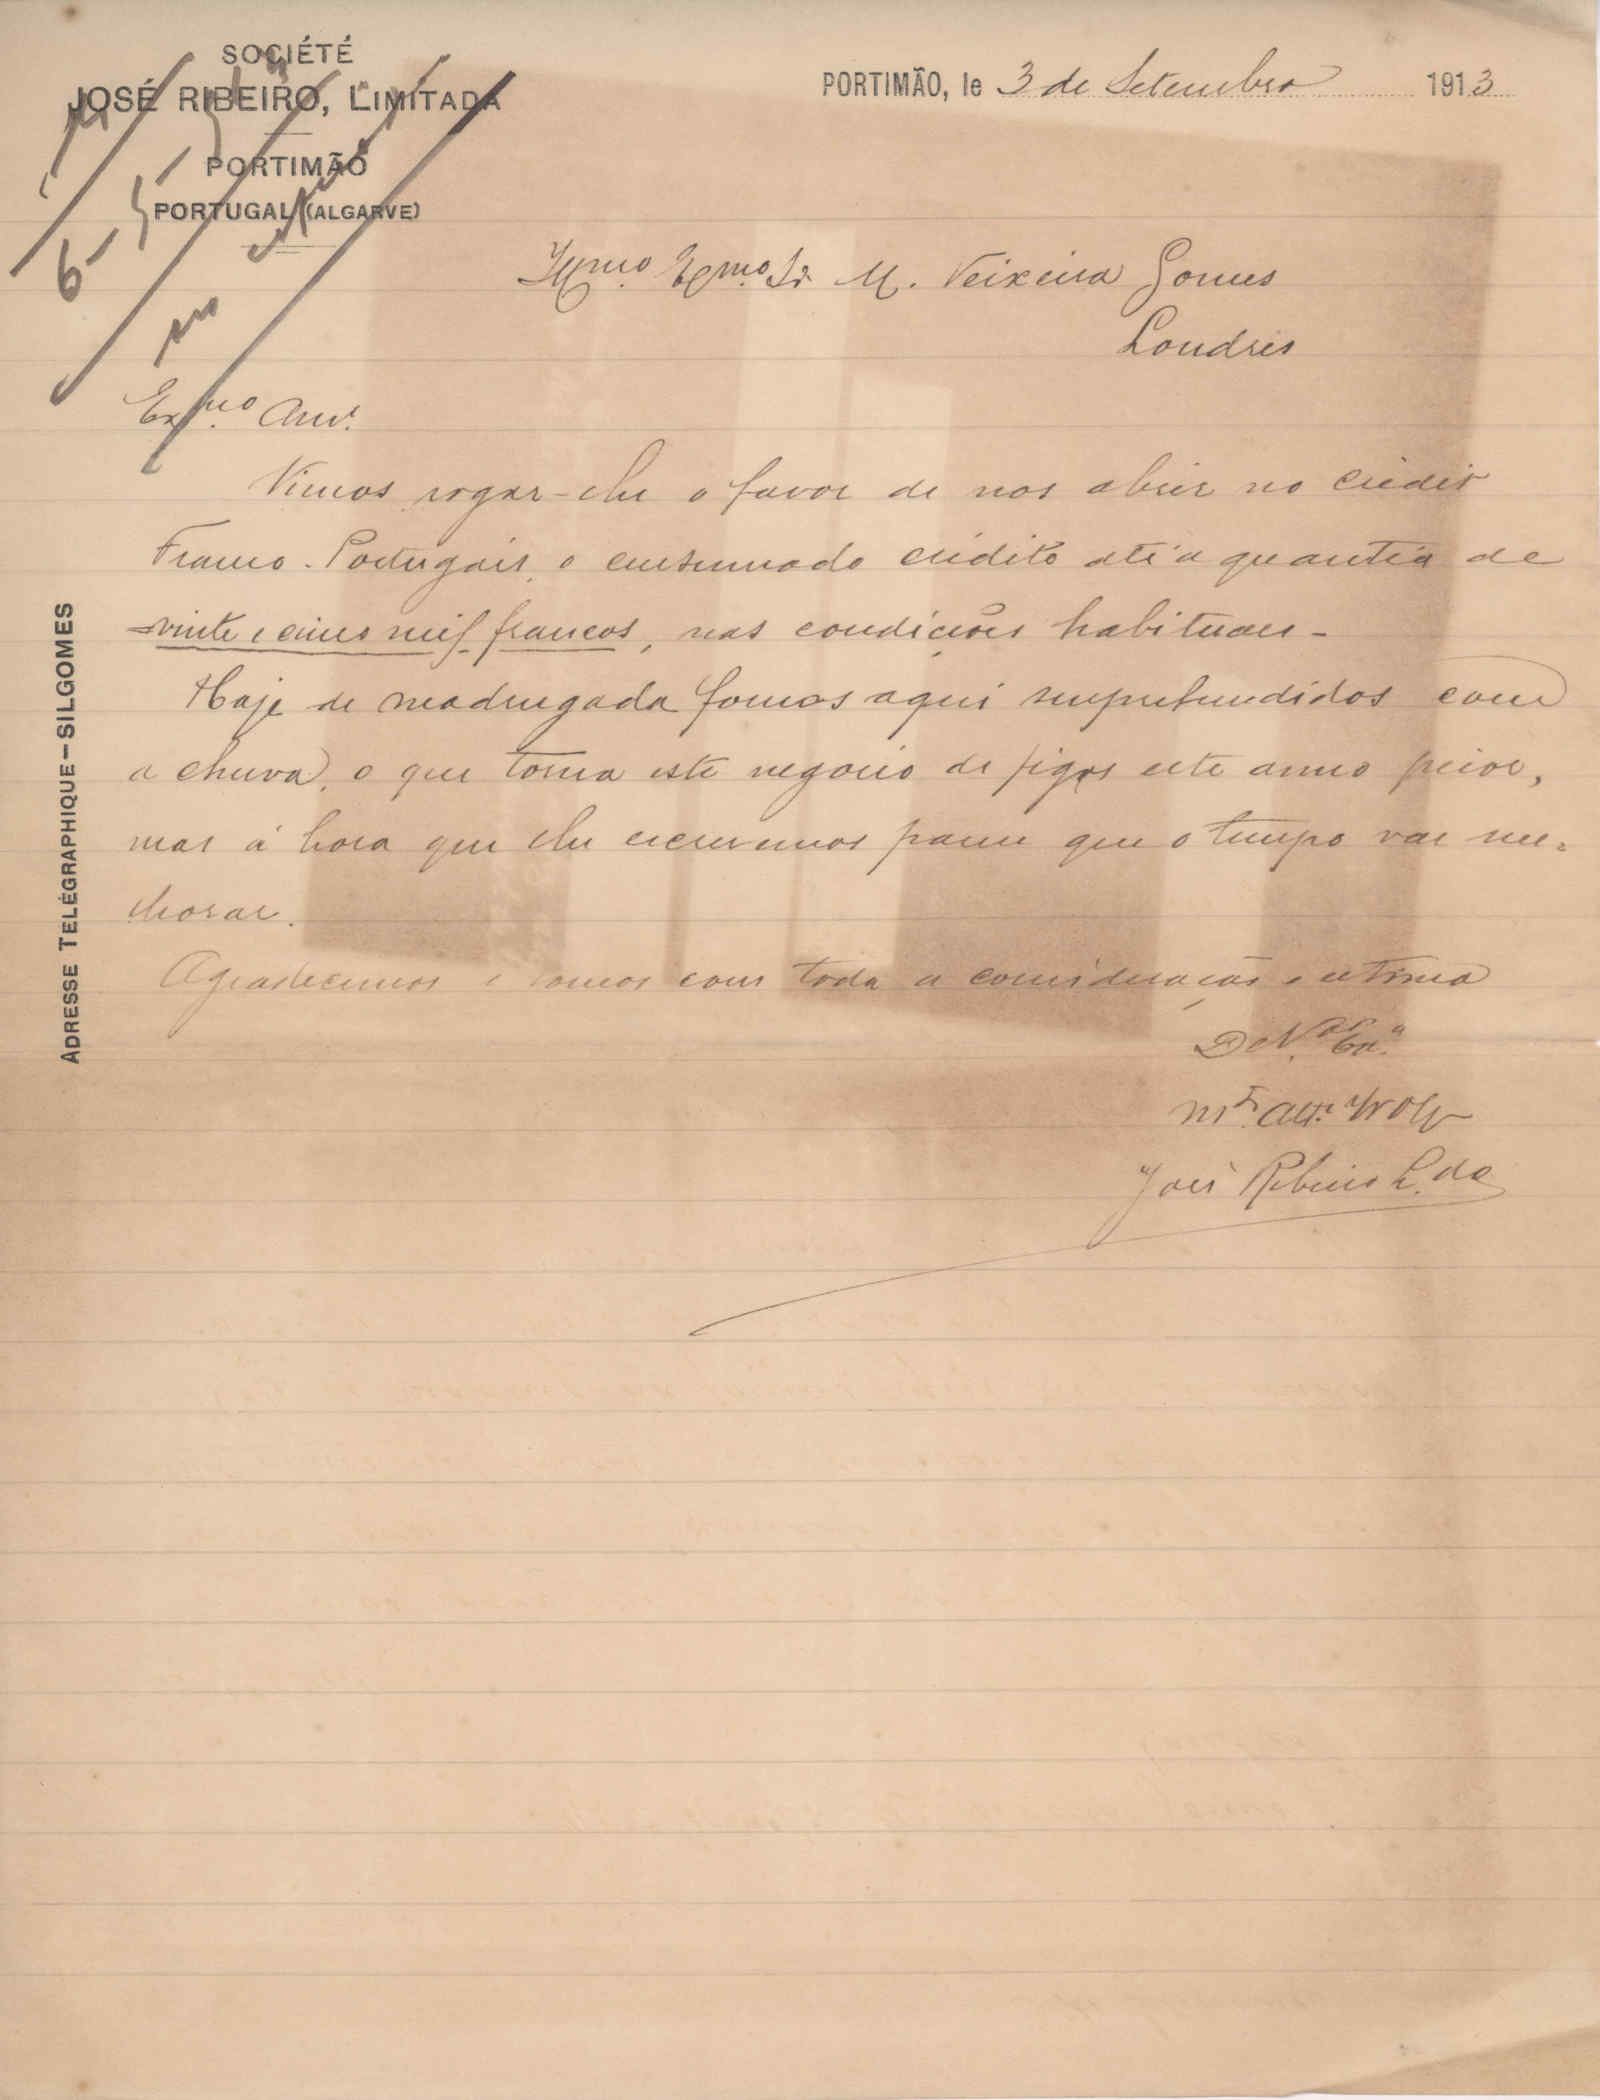 SOCIÉTÉ
JOSÉ RIBEIRO, LIMITADA
PORTIMÃO
PORTUGAL (ALGARVE)
PORTIMÃO, le 3 de Setembro 1913
Illmo. Exmo. Sr. M. Teixeira Gomes
Londres
Exmo. Amº.
Vimos rogar-lhe o favor de nos abrir no Crédit
Franco-Portugais, o costumado crédito até á quantia de
vinte e cinco mil francos, nas condições habituaes-
Hoje de madrugada fomos aqui surprehendidos com
a chuva, o que torna este negocio de figos este anno peior,
mas á hora que lhe escrevemos parece que o tempo vae me=
lhorar.
Agradecemos e somos com toda a consideração e estima
De V. Exª.
José Ribeiro L.da
ADRESSE TELÉGRAPHIQUE—SILGOMES